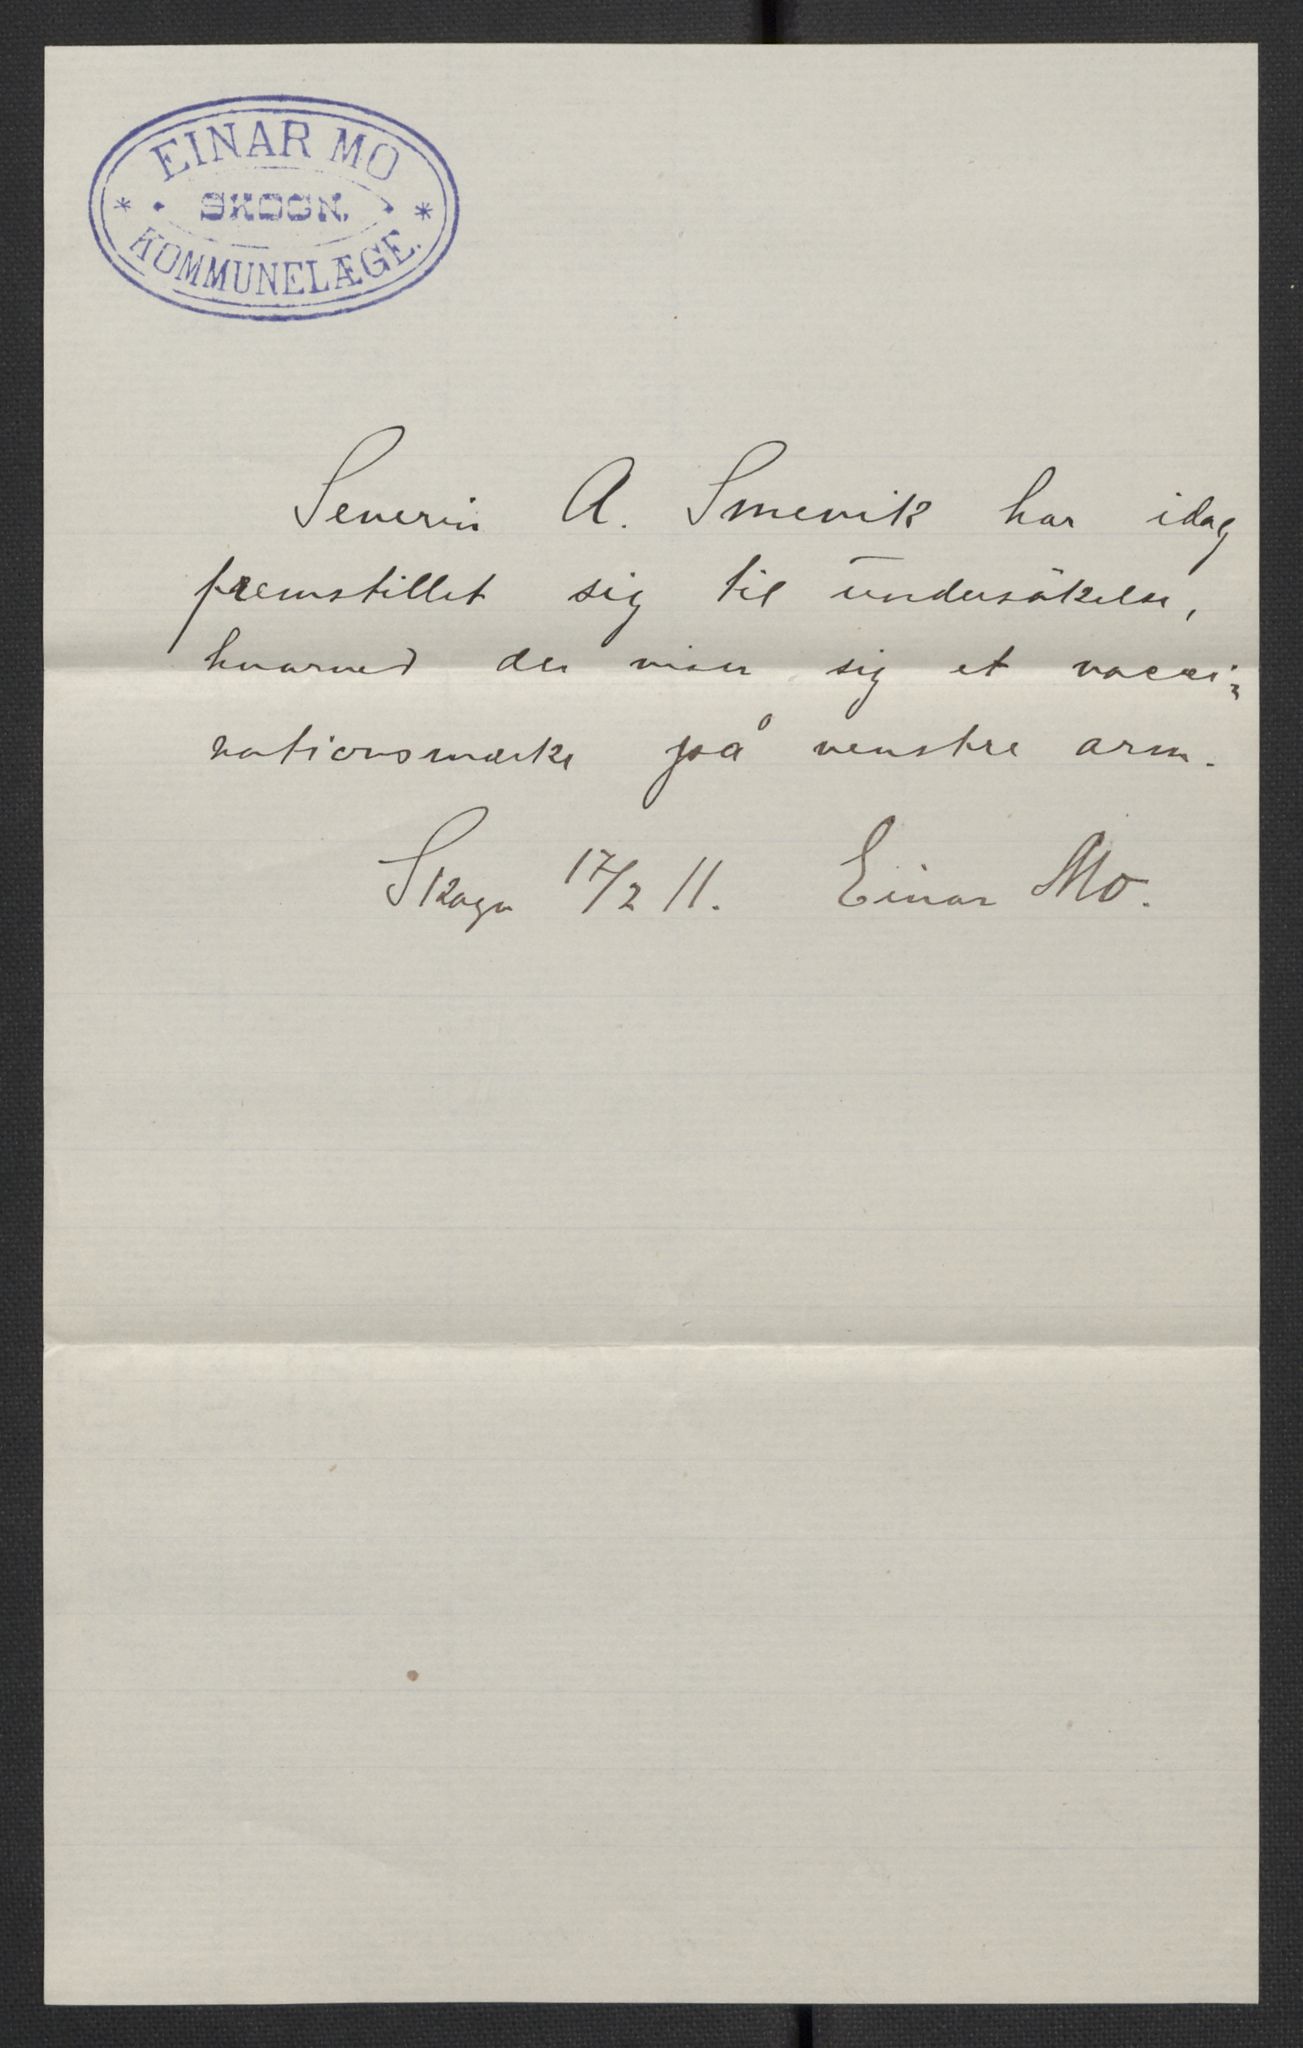 EINAR MO
SKOGN.
KOMMUNELÆGE.
Severin A. Smevik har idag
fremstillet sig til undersökelse,
hvorved der viser sig et vacci-
nationsmærke på venstre arm.
Skogn 17/2 11. Einar Mo.